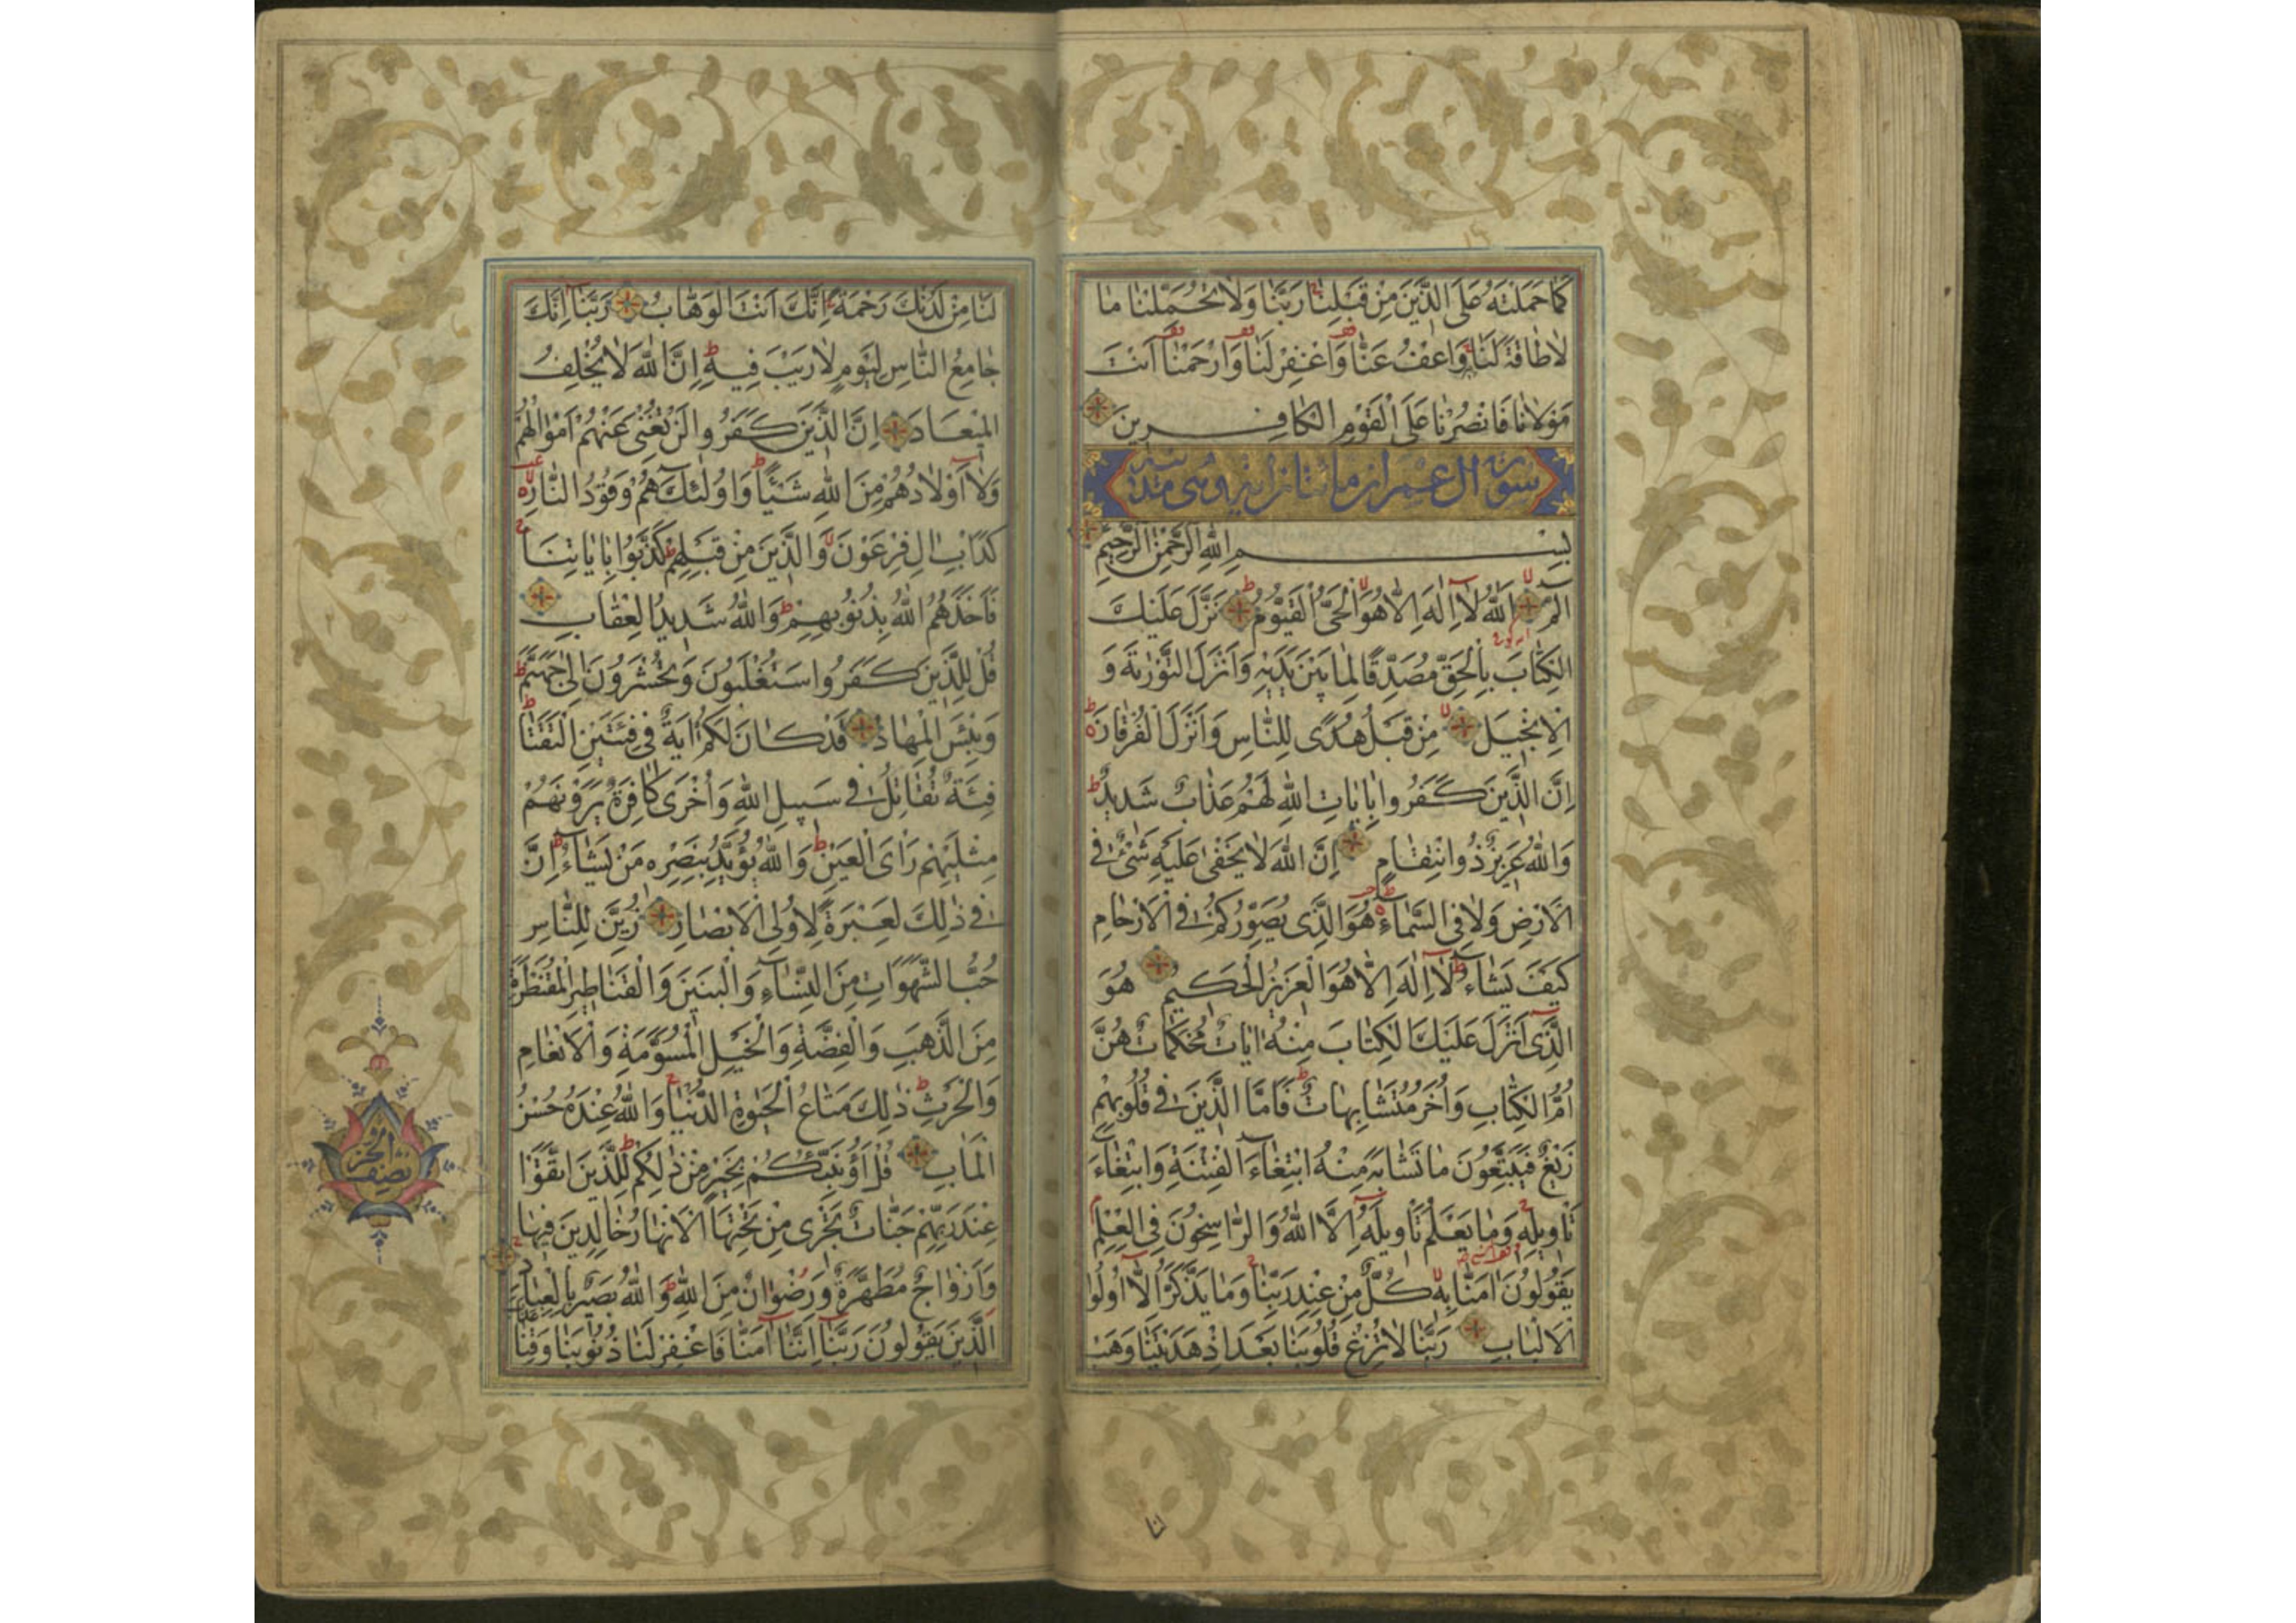 كَمَا حَمَلْتَهُ عَلَى الَّذِينَ مِنْ قَبْلِنَا رَبَّنَا وَلَا تُحَمِّلْنَا مَا
لَا طَاقَةَ لَنَا وَاعْفُ عَنَّا وَاغْفِرْ لَنَا وَارْحَمْنَا أَنْتَ
مَوْلَانَا فَانْصُرْنَا عَلَى الْقَوْمِ الْكَافِرِينَ
سورة ال عمران مائتا اية وهى مدنية
بِسْمِ اللهِ الرَّحْمٰنِ الرَّحِيمِ
الم اللهُ لَا إِلٰهَ إِلَّا هُوَ الْحَيُّ الْقَيُّومُ نَزَّلَ عَلَيْكَ
الْكِتَابَ بِالْحَقِّ مُصَدِّقًا لِمَا بَيْنَ يَدَيْهِ وَأَنْزَلَ التَّوْرٰيةَ وَ
الْإِنْجِيلَ مِنْ قَبْلُ هُدًى لِلنَّاسِ وَأَنْزَلَ الْفُرْقَانَ
إِنَّ الَّذِينَ كَفَرُوا بِاٰيَاتِ اللهِ لَهُمْ عَذَابٌ شَدِيدٌ
وَاللهُ عَزِيزٌ ذُو انْتِقَامٍ إِنَّ اللهَ لَا يَخْفٰى عَلَيْهِ شَيْءٌ فِي
الْأَرْضِ وَلَا فِي السَّمَاءِ هُوَ الَّذِي يُصَوِّرُكُمْ فِي الْأَرْحَامِ
كَيْفَ يَشَاءُ لَا إِلٰهَ إِلَّا هُوَ الْعَزِيزُ الْحَكِيمُ هُوَ
الَّذِي أَنْزَلَ عَلَيْكَ الْكِتَابَ مِنْهُ اٰيَاتٌ مُحْكَمَاتٌ هُنَّ
أُمُّ الْكِتَابِ وَأُخَرُ مُتَشَابِهَاتٌ فَأَمَّا الَّذِينَ فِي قُلُوبِهِمْ
زَيْغٌ فَيَتَّبِعُونَ مَا تَشَابَهَ مِنْهُ ابْتِغَاءَ الْفِتْنَةِ وَابْتِغَاءَ
تَأْوِيلِهِ وَمَا يَعْلَمُ تَأْوِيلَهُ إِلَّا اللهُ وَالرَّاسِخُونَ فِي الْعِلْمِ
يَقُولُونَ اٰمَنَّا بِهِ كُلٌّ مِنْ عِنْدِ رَبِّنَا وَمَا يَذَّكَّرُ إِلَّا أُولُوا
الْأَلْبَابِ رَبَّنَا لَا تُزِغْ قُلُوبَنَا بَعْدَ إِذْ هَدَيْتَنَا وَهَبْ
لَنَا مِنْ لَدُنْكَ رَحْمَةً إِنَّكَ أَنْتَ الْوَهَّابُ رَبَّنَا إِنَّكَ
جَامِعُ النَّاسِ لِيَوْمٍ لَا رَيْبَ فِيهِ إِنَّ اللهَ لَا يُخْلِفُ
الْمِيعَادَ إِنَّ الَّذِينَ كَفَرُوا لَنْ تُغْنِيَ عَنْهُمْ أَمْوَالُهُمْ
وَلَا أَوْلَادُهُمْ مِنَ اللهِ شَيْئًا وَأُولٰئِكَ هُمْ وَقُودُ النَّارِ
كَدَأْبِ اٰلِ فِرْعَوْنَ وَالَّذِينَ مِنْ قَبْلِهِمْ كَذَّبُوا بِاٰيَاتِنَا
فَأَخَذَهُمُ اللهُ بِذُنُوبِهِمْ وَاللهُ شَدِيدُ الْعِقَابِ
قُلْ لِلَّذِينَ كَفَرُوا سَتُغْلَبُونَ وَتُحْشَرُونَ إِلٰى جَهَنَّمَ
وَبِئْسَ الْمِهَادُ قَدْ كَانَ لَكُمْ اٰيَةٌ فِي فِئَتَيْنِ الْتَقَتَا
فِئَةٌ تُقَاتِلُ فِي سَبِيلِ اللهِ وَأُخْرٰى كَافِرَةٌ يَرَوْنَهُمْ
مِثْلَيْهِمْ رَأْيَ الْعَيْنِ وَاللهُ يُؤَيِّدُ بِنَصْرِهِ مَنْ يَشَاءُ إِنَّ
فِي ذٰلِكَ لَعِبْرَةً لِأُولِي الْأَبْصَارِ زُيِّنَ لِلنَّاسِ
حُبُّ الشَّهَوَاتِ مِنَ النِّسَاءِ وَالْبَنِينَ وَالْقَنَاطِيرِ الْمُقَنْطَرَةِ
مِنَ الذَّهَبِ وَالْفِضَّةِ وَالْخَيْلِ الْمُسَوَّمَةِ وَالْأَنْعَامِ
وَالْحَرْثِ ذٰلِكَ مَتَاعُ الْحَيٰوةِ الدُّنْيَا وَاللهُ عِنْدَهُ حُسْنُ
الْمَاٰبِ قُلْ أَؤُنَبِّئُكُمْ بِخَيْرٍ مِنْ ذٰلِكُمْ لِلَّذِينَ اتَّقَوْا
عِنْدَ رَبِّهِمْ جَنَّاتٌ تَجْرِي مِنْ تَحْتِهَا الْأَنْهَارُ خَالِدِينَ فِيهَا
وَأَزْوَاجٌ مُطَهَّرَةٌ وَرِضْوَانٌ مِنَ اللهِ وَاللهُ بَصِيرٌ بِالْعِبَادِ
الَّذِينَ يَقُولُونَ رَبَّنَا إِنَّنَا اٰمَنَّا فَاغْفِرْ لَنَا ذُنُوبَنَا وَقِنَا
نصف الحزب
لنا